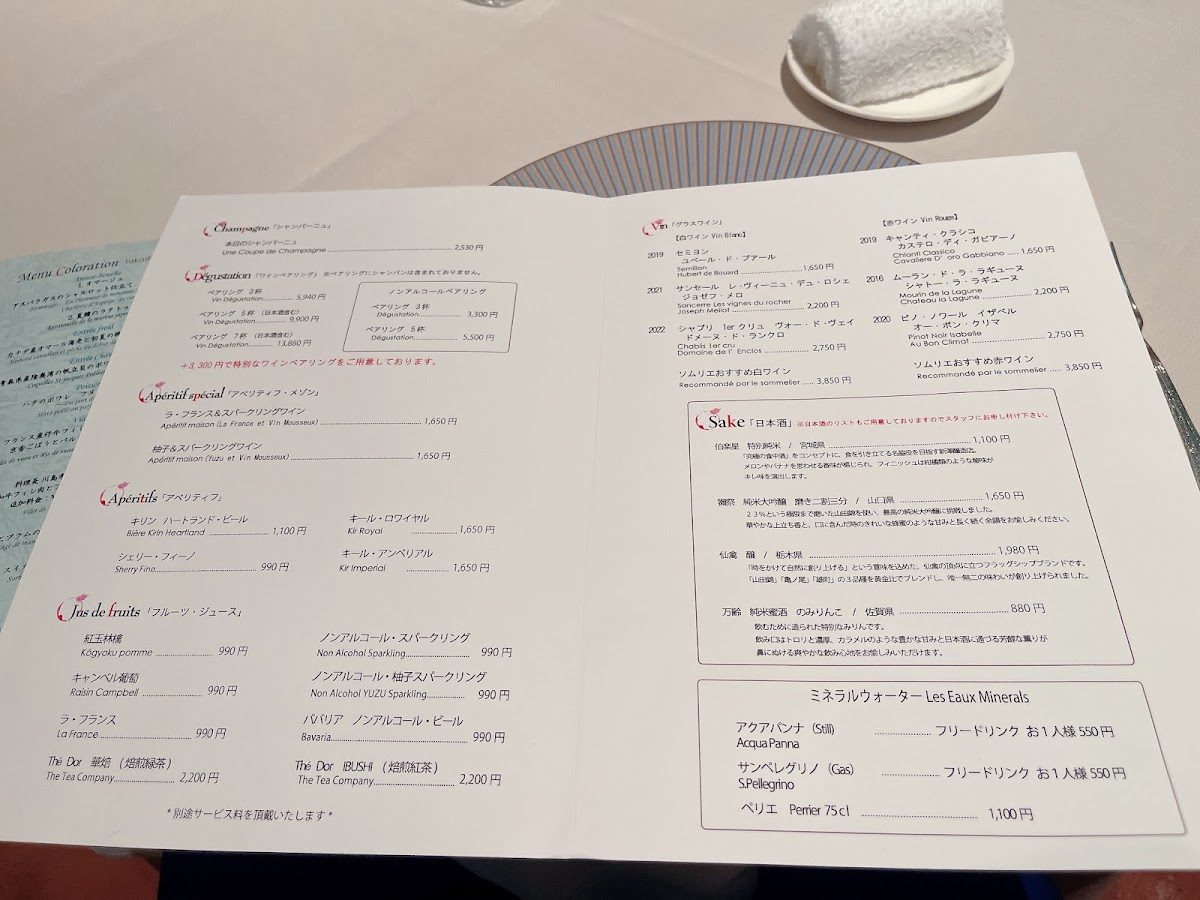 Menu Coloration
Amuse-Bouche
1. オマージュ
Entrée froid
Champagne「シャンパーニュ」
本日のシャンパーニュ
Une Coupe de Champagne 2,530 円
Dégustation「ワインペアリング」 ※ペアリングにシャンパンは含まれておりません。
ペアリング 3杯
Vin Dégustation 5,940 円
ペアリング 5杯 (日本酒含む)
Vin Dégustation 9,900 円
ペアリング 7杯 (日本酒含む)
Vin Dégustation 13,860 円
ノンアルコールペアリング
ペアリング 3杯
Vin Dégustation 3,300 円
ペアリング 5杯
Dégustation 5,500 円
+3,300円で特別なワインペアリングをご用意しております。
Apéritif spécial「アペリティフ・メゾン」
ラ・フランス&スパークリングワイン
Apéritif maison (La France et Vin Mousseux) 1,650 円
柚子&スパークリングワイン
Apéritif maison (Yuzu et Vin Mousseux) 1,650 円
Apéritifs「アペリティフ」
キリン ハートランド・ビール
Bière Kirin Heartland 1,100 円
シェリー・フィーノ
Sherry Fino 990 円
キール・ロワイヤル
Kir Royal 1,650 円
キール・アンペリアル
Kir Imperial 1,650 円
Jus de fruits「フルーツ・ジュース」
紅玉林檎
Kōgyoku pomme 990 円
キャンベル葡萄
Raisin Campbell 990 円
ラ・フランス
La France 990 円
Thé Dor 華焙 (焙煎緑茶)
The Tea Company 2,200 円
ノンアルコール・スパークリング
Non Alcohol Sparkling 990 円
ノンアルコール・柚子スパークリング
Non Alcohol YUZU Sparkling 990 円
ババリア ノンアルコール・ビール
Bavaria 990 円
Thé Dor IBUSHI (焙煎紅茶)
The Tea Company 2,200 円
*別途サービス料を頂戴いたします*
Vin「グラスワイン」
【白ワイン Vin Blanc】
2019 セミヨン
ユベール・ド・ブアール
Semillon
Hubert de Bouard 1,650 円
2021 サンセール レ・ヴィーニュ・デュ・ロシェ
ジョゼフ・メロ
Sancerre Les vignes du rocher
Joseph Mellot 2,200 円
2022 シャブリ 1er クリュ ヴォー・ド・ヴェイ
ドメーヌ・ド・ランクロ
Chablis 1er cru
Domaine de l' Enclos 2,750 円
ソムリエおすすめ白ワイン
Recommandé par le sommelier 3,850 円
【赤ワイン Vin Rouge】
2019 キャンティ・クラシコ
カステロ・デイ・ガビアーノ
Chianti Classico
Cavaliere D' oro Gabbiano 1,650 円
2016 ムーラン・ド・ラ・ラギューヌ
シャトー・ラ・ラギューヌ
Mourin de la Lagune
Chateau la Lagune 2,200 円
2020 ピノ・ノワール イザベル
オー・ボン・クリマ
Pinot Noir Isabelle
Au Bon Climat 2,750 円
ソムリエおすすめ赤ワイン
Recommandé par le sommelier 3,850 円
Sake「日本酒」※日本酒のリストもご用意しておりますのでスタッフにお申し付け下さい。
伯楽星 特別純米 / 宮城県 1,100 円
「究極の食中酒」をコンセプトに、食を引き立てる名脇役を目指す新澤醸造店。
メロンやバナナを思わせる香味が感じられ、フィニッシュは柑橘類のような酸味が
キレ味を演出します。
獺祭 純米大吟醸 磨き二割三分 / 山口県 1,650 円
23%という極限まで磨いた山田錦を使い、最高の純米大吟醸に挑戦しました。
華やかな上立ち香と、口に含んだ時のきれいな蜂蜜のような甘みと長く続く余韻をお愉しみください。
仙禽 醸 / 栃木県 1,980 円
「時をかけて自然に創り上げる」という意味を込めた、仙禽の頂点に立つフラッグシップブランドです。
「山田錦」「亀ノ尾」「雄町」の3品種を黄金比でブレンドし、唯一無二の味わいが創り上げられました。
万齢 純米蜜酒 のみりんこ / 佐賀県 880 円
飲むために造られた特別なみりんです。
飲み口はトロリと濃厚、カラメルのような豊かな甘みと日本酒に通づる芳醇な薫りが
鼻にぬける爽やかな飲み心地をお愉しみいただけます。
ミネラルウォーター Les Eaux Minerals
アクアパンナ (Still) フリードリンク お1人様 550 円
Acqua Panna
サンペレグリノ (Gas) フリードリンク お1人様 550 円
S.Pellegrino
ペリエ Perrier 75 cl 1,100 円